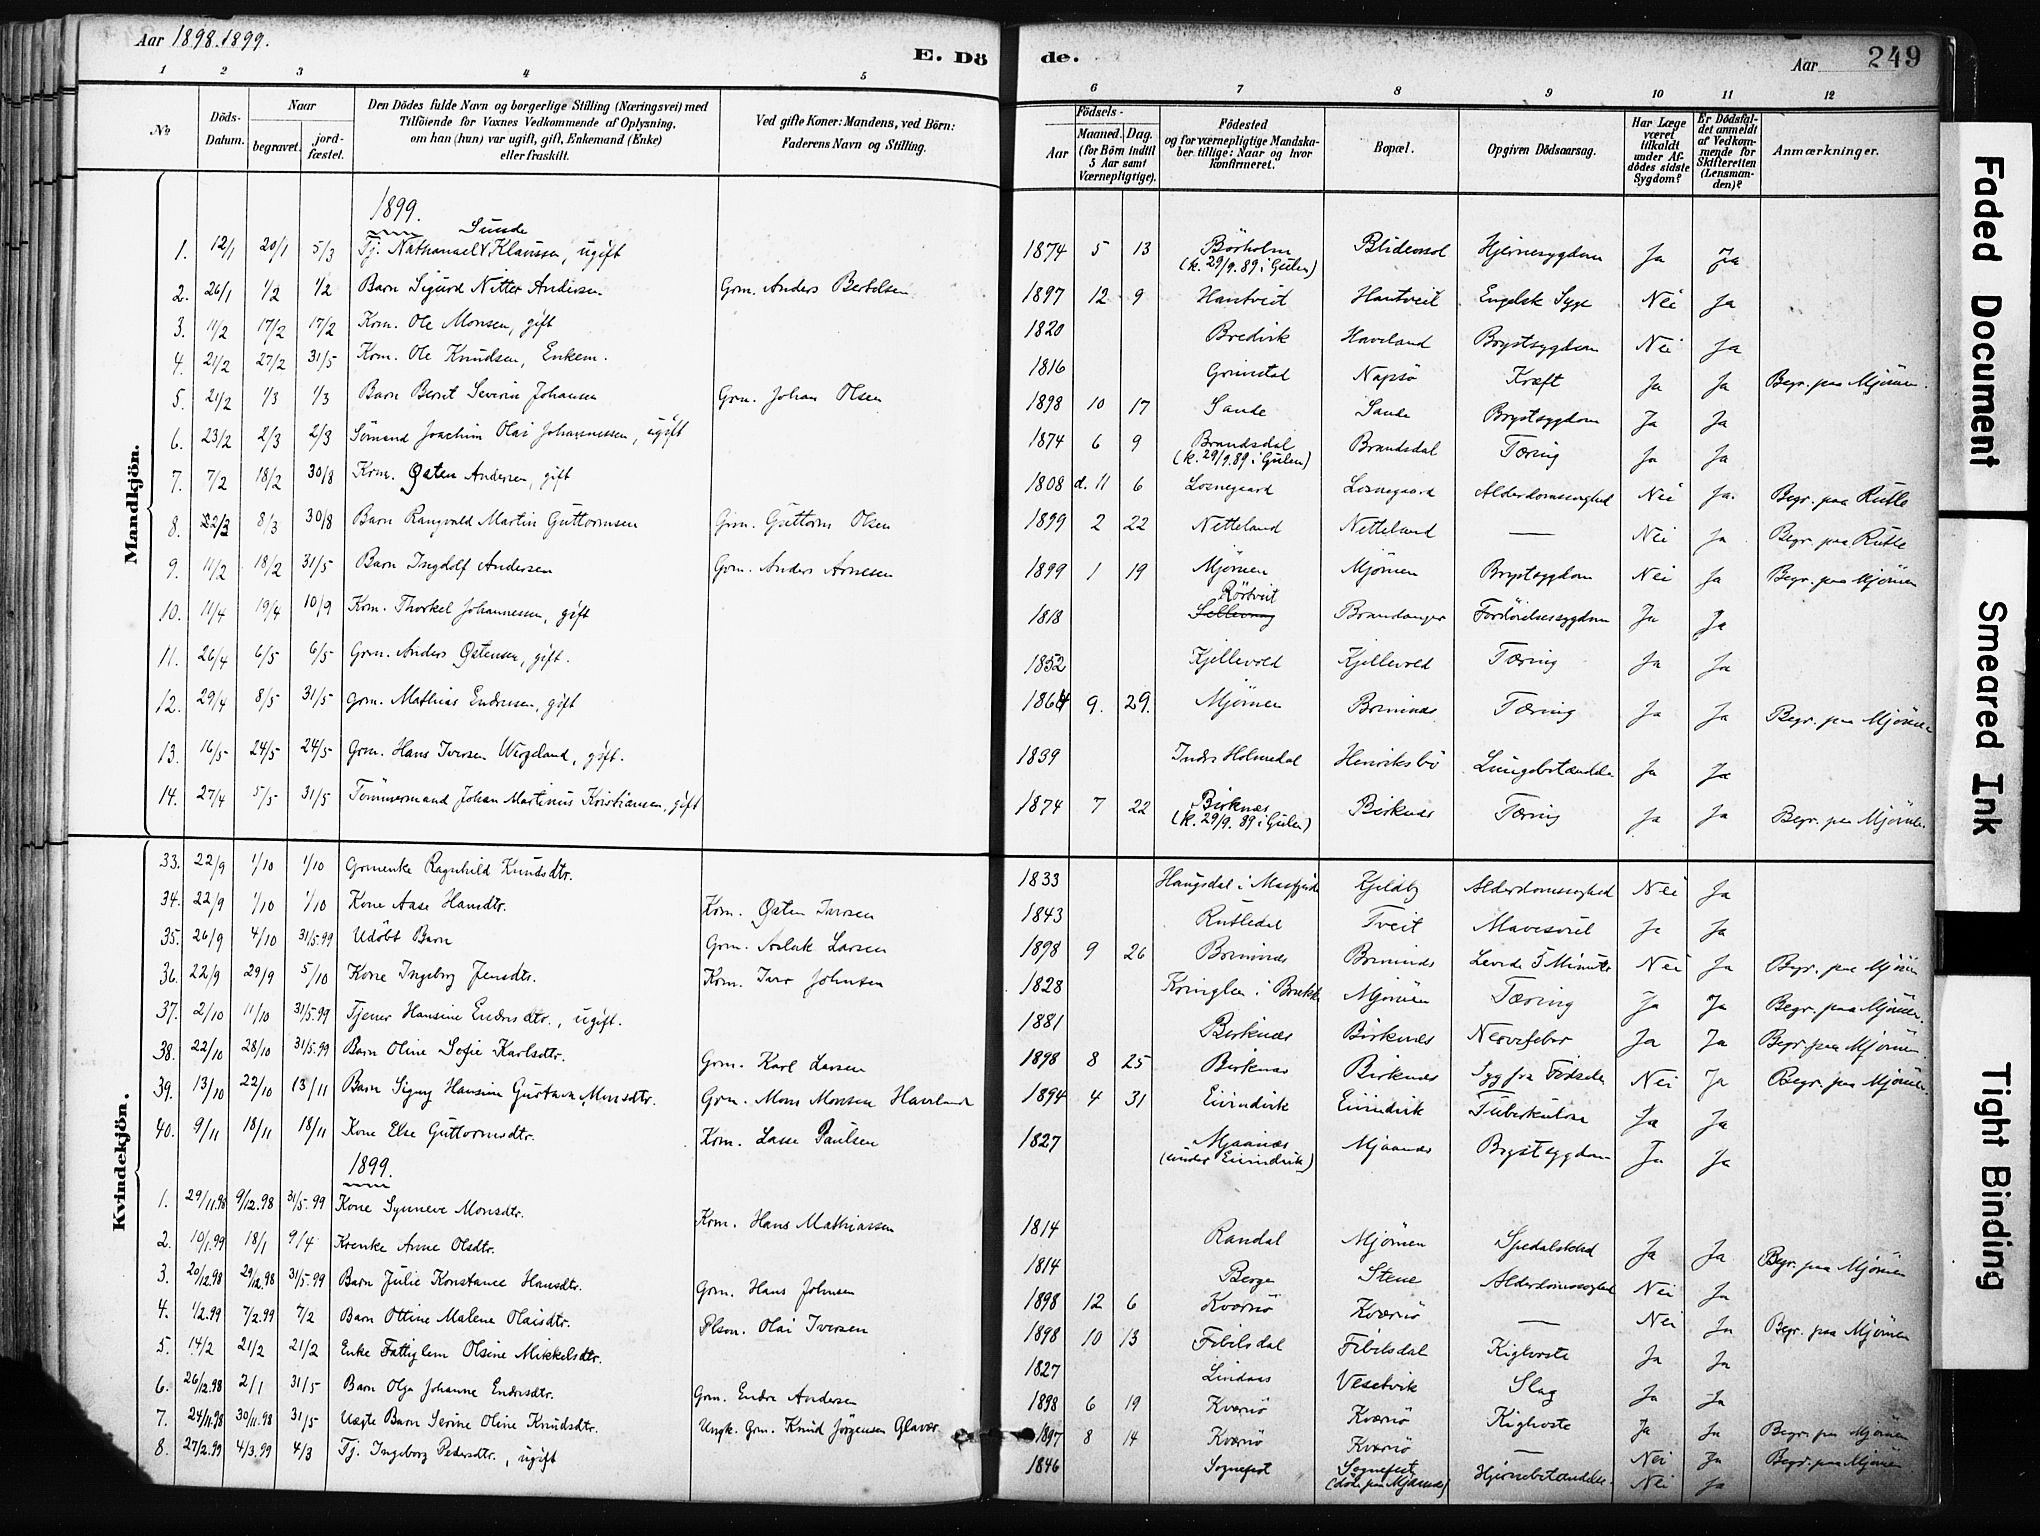 Aar 1898.1899.
E. Dö de.
Aar
249
1 2 3 4 5 6 7 8 9 10 11 12
No
Döds-Datum.
Naar
begravet.
jordfæstet.
Den Dödes fulde Navn og borgerlige Stilling (Næringsvei) med
Tilföiende for Voxnes Vedkommende af Oplysning,
om han (hun) var ugift, gift, Enkemand (Enke)
eller fraskilt.
Ved gifte Koner: Mandens, ved Börn:
Faderens Navn og Stilling.
Födsels-
Aar
Maaned. Dag.
(for Börn indtil
5 Aar samt
Værnepligtige).
Födested
og for værnepligtige Mandska-
ber tillige: Naar og hvor
konfirmeret.
Bopæl.
Opgiven Dödsaarsag.
Har Læge
været
tilkaldt
under Af-
dödes sidste
Sygdom?
Er Dödsfal-
det anmeldt
af Vedkom-
mende for
Skifteretten
(Lensman-
den)?
Anmærkninger.
Mandkjön.
1899.
Sunde
1. 12/1 20/1 5/3 Tj. Nathanael Klaussen, ugift 1874 5 13 Börholm Blidensol Hjernesygdom Ja Ja
(k. 29/9.89 i Gulen)
2. 26/1 1/2 1/2 Barn Sigurd Nitter Andersen Grm. Anders Bertelsen 1897 12 9 Hantveit Hantveit Engelsk Syge Nei Ja
3. 11/2 17/2 17/2 Krm. Ole Monsen, gift 1820 Bredvik Haveland Brystsygdom Nei Ja
4. 21/2 27/2 31/5 Krm. Ole Knudsen, Enkem. 1816 Grinstal Napsö Kræft Ja Ja Begr. paa Mjömen.
5. 21/2 1/3 1/3 Barn Bernt Severin Johansen Grm. Johan Olsen 1898 10 17 Sande Sande Brystsygdom Ja Ja
6. 23/2 2/3 2/3 Sömand Joachim Olai Johannessen, ugift 1874 6 9 Brandsdal Brandsdal Tæring Ja Ja
(k. 29/9.89 i Gulen)
7. 7/2 18/2 30/8 Krm. Østen Andersen, gift 1808 d. 11 6 Losnegaard Losnegaard Alderdomssvaghed Nei Ja. Begr. paa Rutle
8. 22/3 8/3 30/8 Barn Rangvald Martin Guttormsen Grm. Guttorm Olsen 1899 2 22 Netteland Netteland — Nei Ja Begr. paa Rutle
9. 11/2 18/2 31/5 Barn Ingdolf Andersen Grm. Anders Arnesen 1899 1 19 Mjömen Mjömen Brystsygdom Nei Ja Begr. paa Mjömen
Rörtveit
10. 11/4 19/4 10/9 Krm. Thorkel Johannessen, gift 1818 Brandanger Fordöielsessygdom Ja Ja
11. 26/4 6/5 6/5 Grm. Anders Østensen, gift. 1852 Kjellevold Kjellevold Tæring Ja Ja
12. 29/4 8/5 31/5 Grm. Mathias Endresen, gift 1864 9. 29. Mjömen Brimnæs Tæring Ja Ja Begr. paa Mjömen
13. 16/5 24/5 24/5 Grm. Hans Iversen Wergeland, gift. 1839 Indre Holmedal Henriksbö Lungebetændelse Ja Ja
14. 27/4 5/5 31/5 Tömmermand Johan Martinus Kristiansen, gift 1874 7 22 Birknæs Birknæs Tæring Ja Ja Begr. paa Mjömen.
(k. 29/9.89 i Gulen)
Kvindekjön.
33. 22/9 1/10 1/10 Grmenke Ragnhild Knudsdtr. 1833 Haugsdal i Masfjorden Kjeldby Alderdomssvaghed Nei Ja
34. 22/9 1/10 1/10 Kone Aase Hansdtr. Krm. Østen Iversen 1843 Rutledal Tveit Mavesvul Ja Ja
35. 26/9 4/10 31/5.99 Udöbt Barn Grm. Aslak Larsen 1898 9 26 Brimnæs Brimnæs Levede 5 Minuter Nei Ja Begr. paa Mjömen
36. 22/9 29/9 5/10 Kone Ingeborg Jensdtr. Krm. Iver Johnsen 1828 Kringlen i Brekke Mjömen Tæring Ja Ja Begr. paa Mjömen.
37. 2/10 11/10 31/5.99 Tjener Hansine Endresdtr., ugift. 1881 Birknæs Birknæs Nervefeber Ja Ja Begr. paa Mjömen.
38. 22/10 28/10 31/5.99 Barn Oline Sofie Karlsdtr. Grm. Karl Larsen 1898 8 25 Birknæs Birknæs Syg fra Födselen Nei Ja Begr. paa Mjömen.
39. 13/10 22/10 13/11 Barn Signy Hansine Gustava Monsdtr. Grm. Mons Monsen Haveland 1894 4 31 Eivindvik Eivindvik Tuberkulose Ja Ja
40. 9/11 18/11 18/11 Kone Else Guttormsdtr. Krm. Lasse Paulsen 1827 Mjaanæs Mjaanæs Brystsygdom Ja Ja
(under Eivindvik)
1899.
1. 29/11.98 9/12.98 31/5.99 Kone Synneve Monsdtr. Krm. Hans Mathiassen 1814 Randal Mjömen Spedalskhed Ja Ja Begr. paa Mjömen
2. 10/1.99 18/1 9/4 Krenke Anne Olsdtr. 1814 Berge Stene Alderdomssvaghed Nei Ja
3. 20/12.98 29/12.98 31/5.99 Barn Julie Konstance Hansdtr. Grm. Hans Johnsen 1898 12 6 Kværnö Kværnö — Nei Ja Begr. paa Mjömen
4. 1/2.99 7/2.99 7/2 Barn Ottine Malene Olaisdtr. Plsm. Olai Iversen 1898 10 13 Fibilsdal Fibilsdal Kighoste Ja Ja
5. 14/2 21/2 21/2 Enke Fattiglem Olsine Mikkelsdtr. 1827 Lindaas Vesetvik Slag Ja Ja
6. 26/12.98 2/1 31/5 Barn Olga Johanne Endresdtr. Grm. Endre Andersen 1898 6 19 Kværnö Kværnö Kighoste Ja Ja Begr. paa Mjömen
7. 24/11.98 30/11.98 31/5 Uægte Barn Serine Oline Knudsdtr. Ungk. Grm. Knud Jörgensen Glavær 1897 8 14 Kværnö Kværnö — Nei Ja Begr. paa Mjömen
8. 27/2.99 4/3.99 4/3 Tj. Ingeborg Pedersdtr., ugift 1846 Sognefest Sognefest Hjernebetændelse. Nei Ja
(döde paa Mjaanæs)
Faded Document
Smeared Ink
Tight Binding